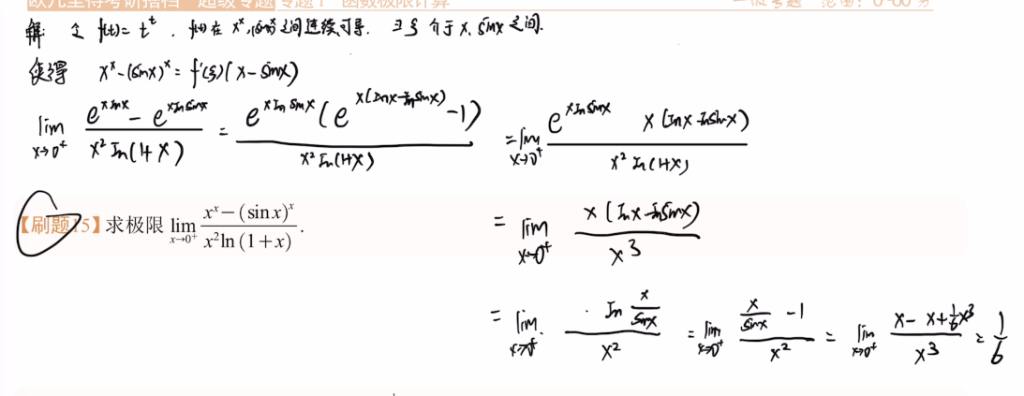 解: 令 f(t)= t^t . f(t) 在 x^x, (sinx)^x 之间连续可导. ∃ξ 介于 x, sinx 之间.
使得 x^x-(sinx)^x = f'(ξ)(x-sinx)
lim x→0⁺ (e^{xlnx} - e^{xlnsinx}) / (x² ln(1+x)) = e^{xlnsinx}(e^{x(lnx-lnsinx)}-1) / (x² ln(1+x)) = lim x→0⁺ e^{xlnsinx} x(lnx-lnsinx) / (x² ln(1+x))
【刷题15】求极限 lim x→0⁺ (x^x-(sin x)^x) / (x²ln(1+x)).
= lim x→0⁺ x(lnx-lnsinx) / x³
= lim x→0⁺ ln (x/sinx) / x² = lim x→0⁺ (x/sinx -1) / x² = lim x→0⁺ (x-x+1/6 x³) / x³ = 1/6